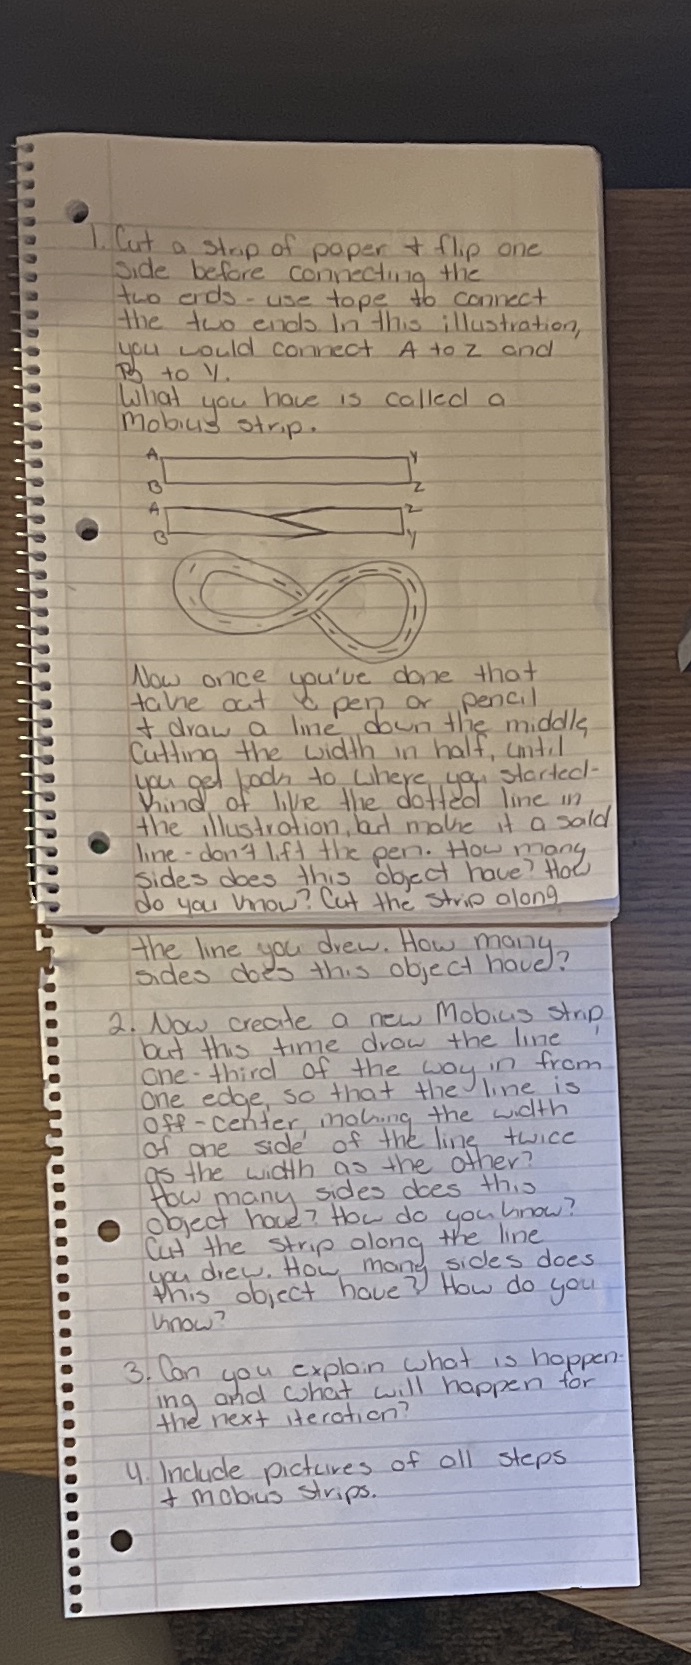 1. Cut a strip of paper + flip one
side before connecting the
two ends - use tape to connect
the two ends In this illustration,
you would connect A to Z and
B to Y.
What you have is called a
Mobius strip.
A Y
B Z
A Z
B Y
Now once you've done that
take out a pen or pencil
+ draw a line down the middle,
Cutting the width in half, until
you get back to where you started-
kind of like the dotted line in
the illustration, but make it a solid
line - don't lift the pen. How many
sides does this object have? How
do you know? Cut the strip along
the line you drew. How many
sides does this object have?
2. Now create a new Mobius strip,
but this time draw the line
one-third of the way in from
one edge, so that the line is
off-center, making the width
of one side of the line twice
as the width as the other?
How many sides does this
object have? How do you know?
Cut the strip along the line
you drew. How many sides does
this object have? How do you
know?
3. Can you explain what is happen-
ing and what will happen for
the next iteration?
4. Include pictures of all steps
+ mobius strips.